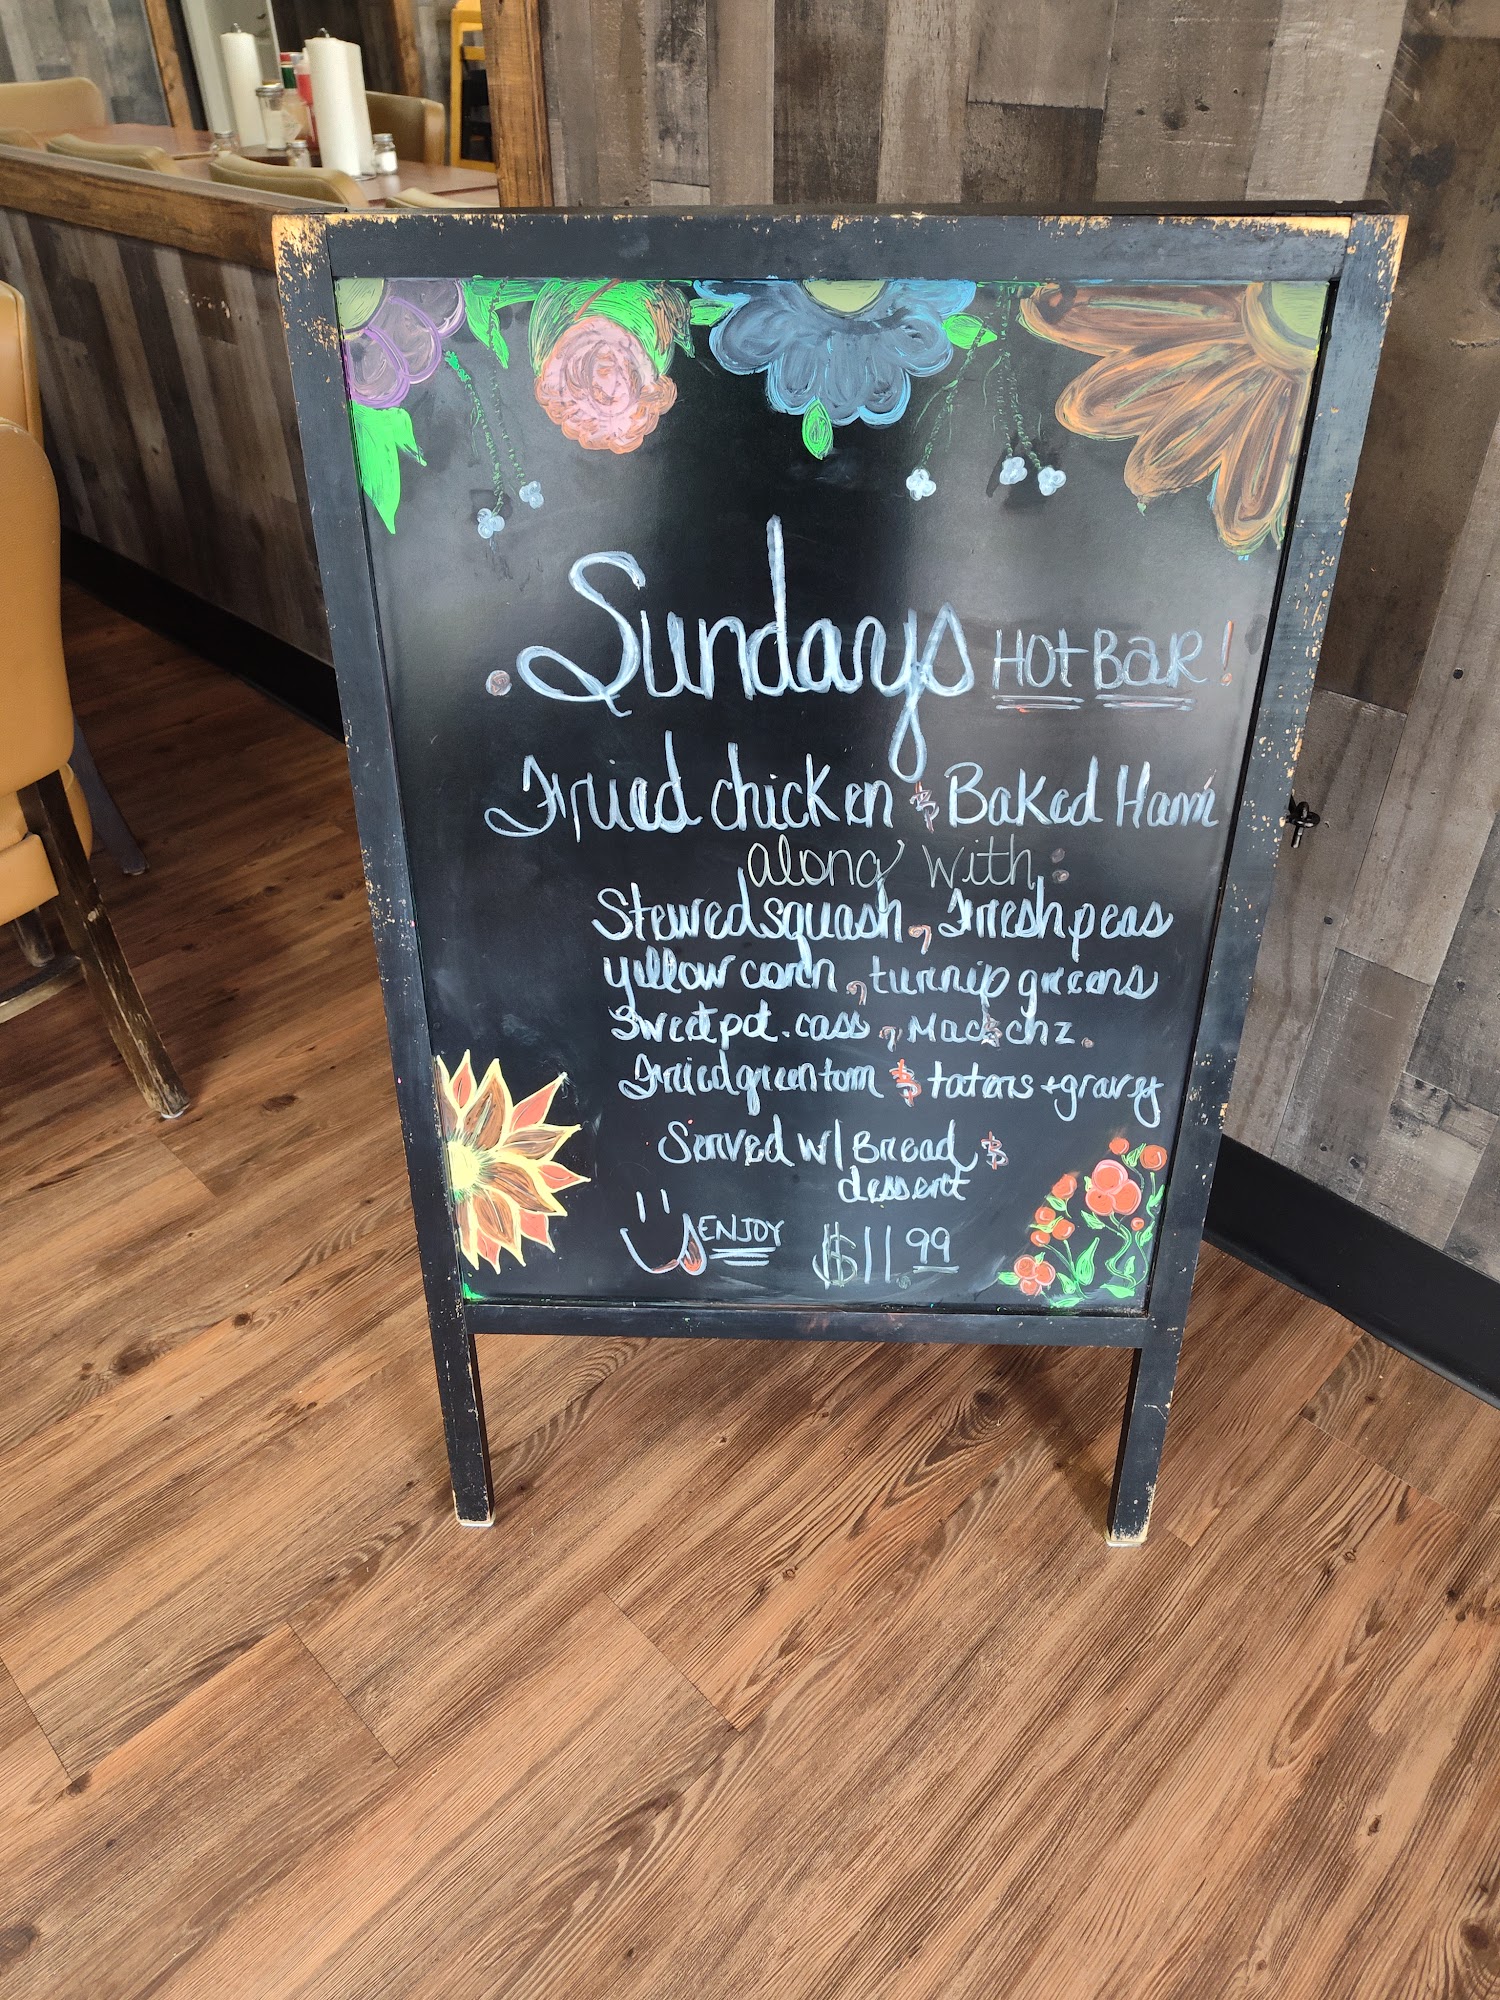 Sundays HOT BAR!
Fried chicken & Baked Ham
along with:
Stewed squash, Fresh peas
yellow corn, turnip greens
Sweet pot. cass, Mac & chz.
Fried green tom & taters + gravy
Served w/ Bread &
dessert
ENJOY $11.99